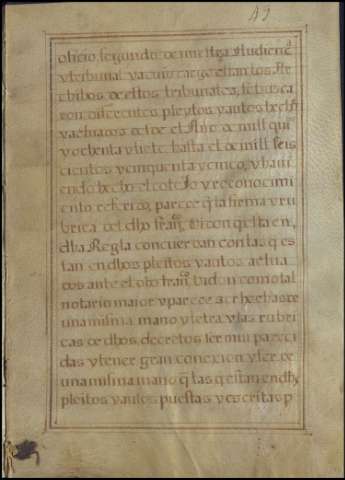 43
oficio, segundo de nuestra Audienc
y tribunal y a cuio cargo estan los Ar
chibos de estos tribunales, se busca
ron, distrectos pleytos y autos hechos
y actuados desde el Año de mill qui
y ochenta y siete hasta el de mill seis
cientos y cinquenta y cinco, y havi
endo hecho el cotejo y reconocimi
ento referido, parece q̃ la firma y ru
brica del dho fran.co Vidon questa en
dha Regla concuerdan con las q̃ es
tan en dhos pleitos y autos actua
dos ante el dho fran.co Vidon como tal
notario maior y parece ser hechas de
una misma mano y letra y las rubri
cas de dhos decretos ser mui pareci
das y tener gran conexion y ser de
una misma mano q̃ las q̃ estan en dhos
pleitos y autos puestas y escritas p